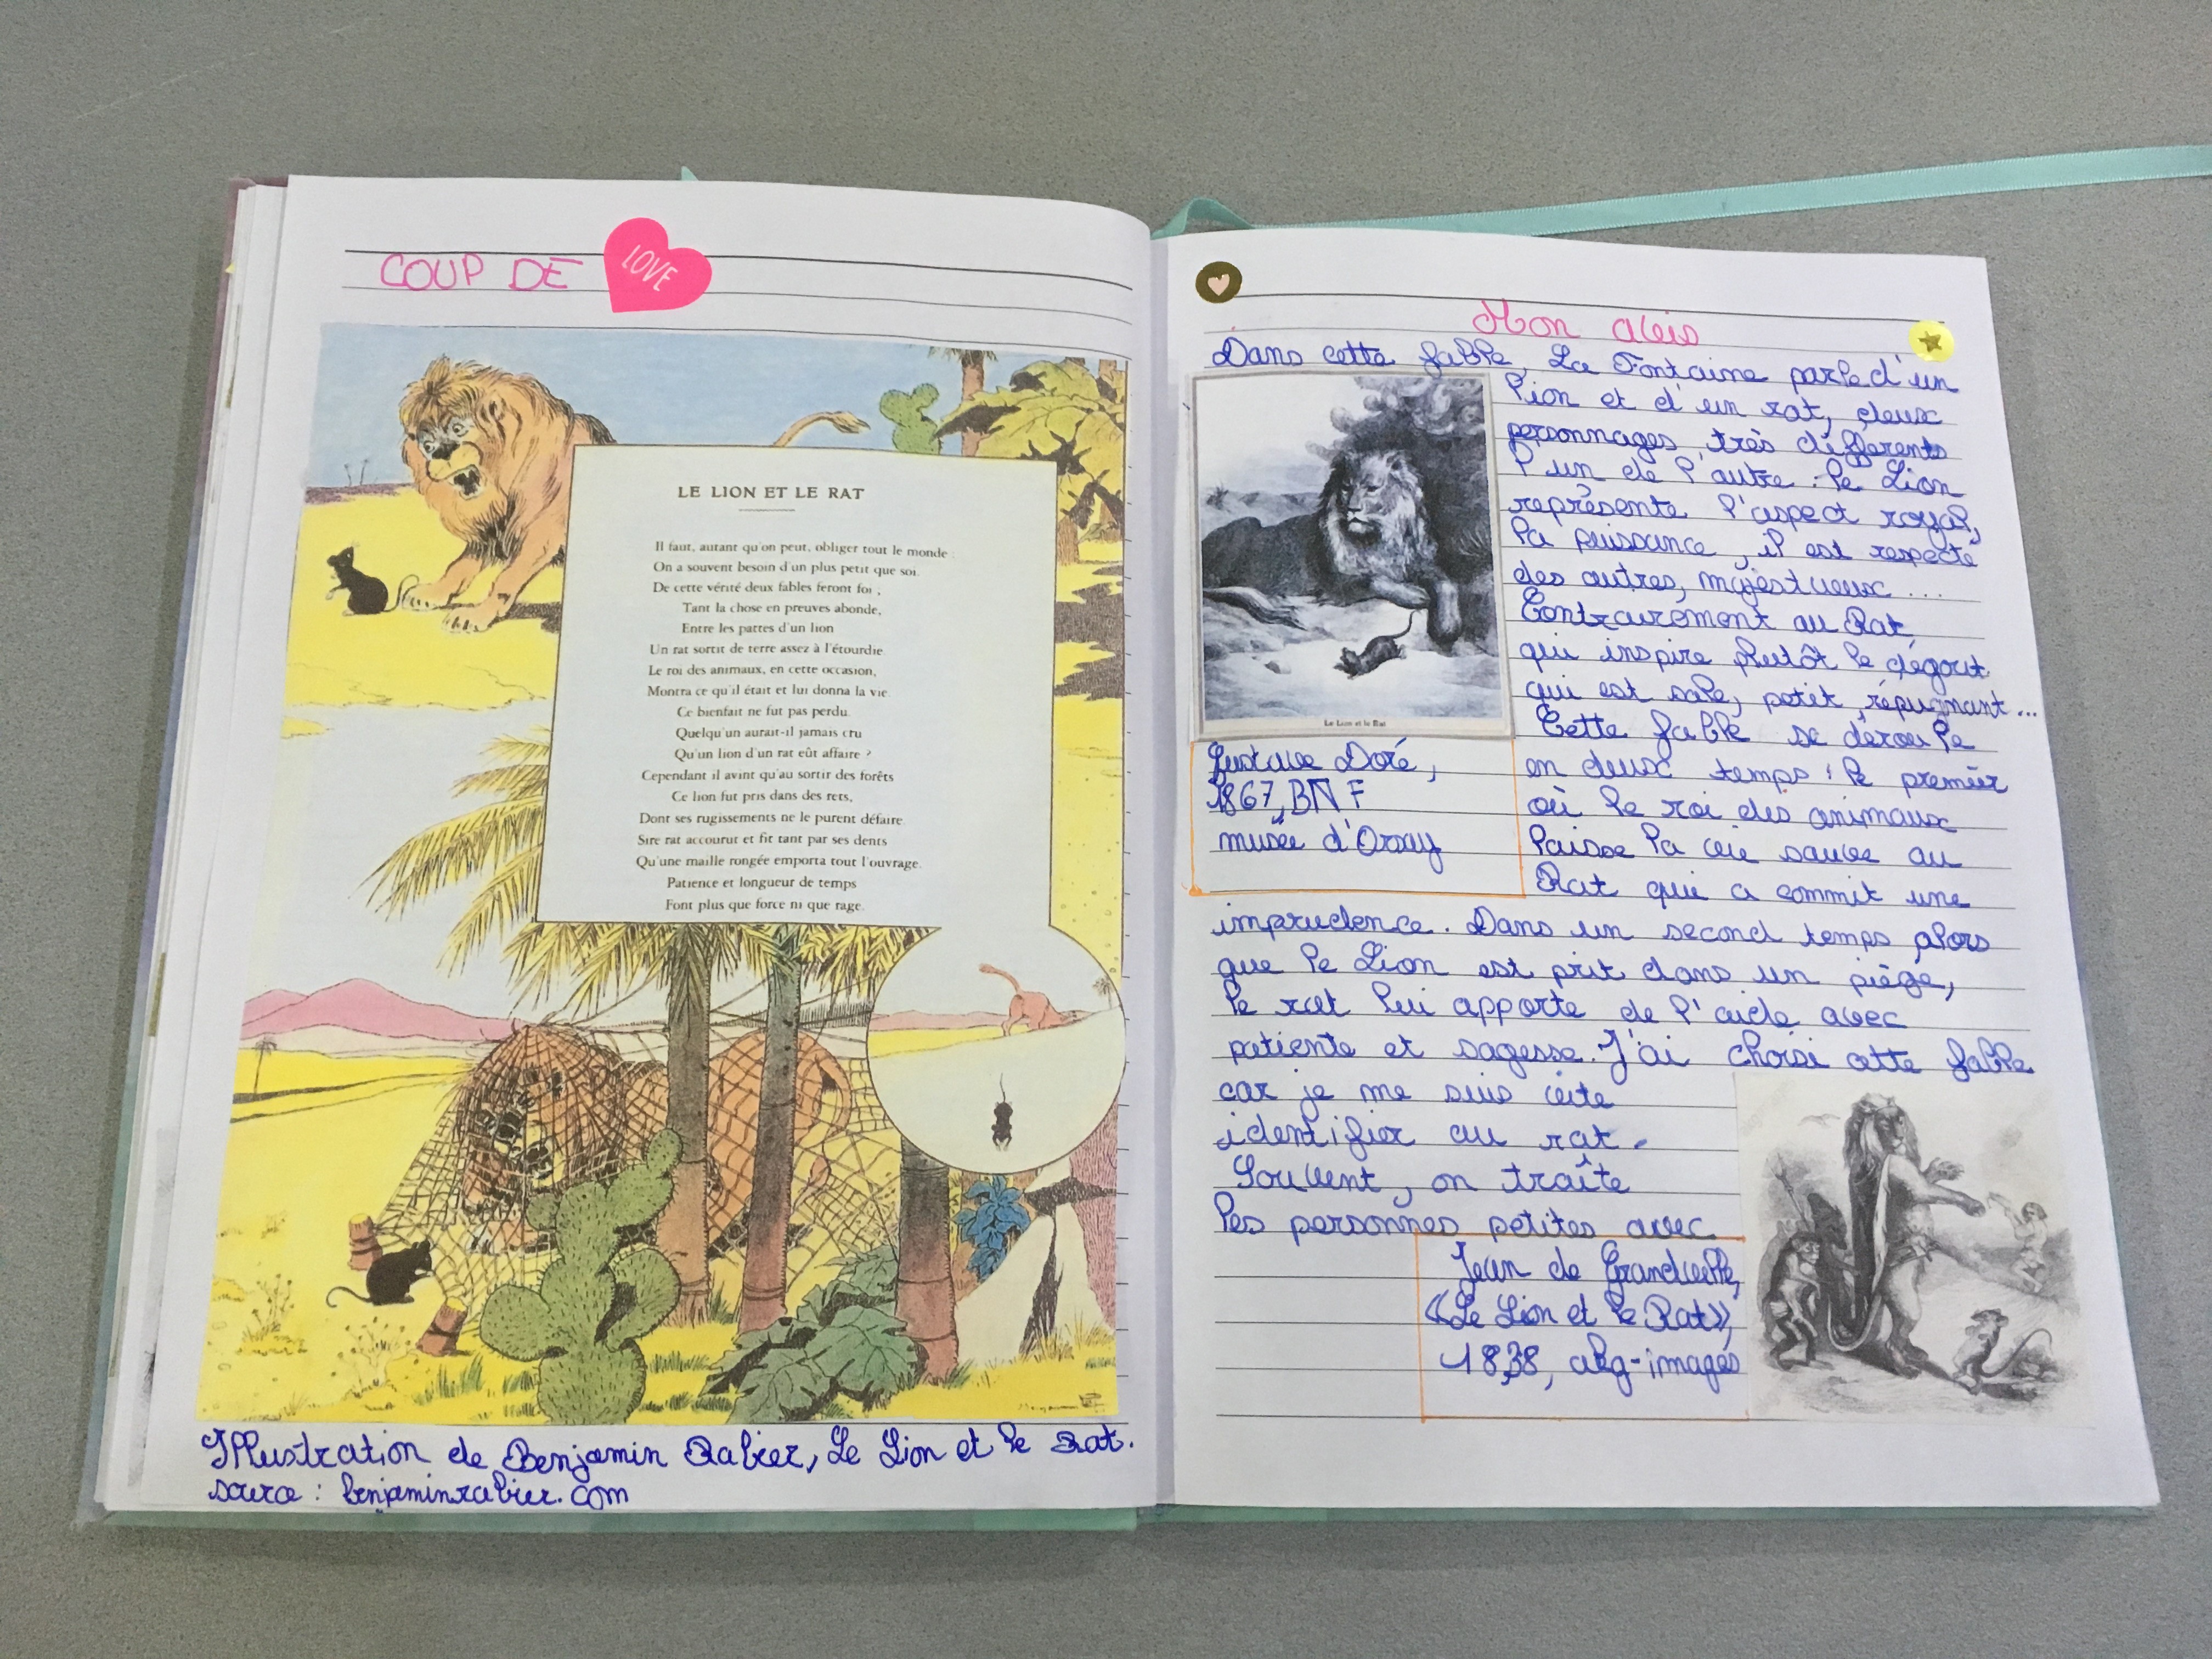 COUP DE
LOVE
LE LION ET LE RAT
Il faut, autant qu'on peut, obliger tout le monde :
On a souvent besoin d'un plus petit que soi.
De cette vérité deux fables feront foi ;
Tant la chose en preuves abonde,
Entre les pattes d'un lion
Un rat sortit de terre assez à l'étourdie.
Le roi des animaux, en cette occasion,
Montra ce qu'il était et lui donna la vie.
Ce bienfait ne fut pas perdu.
Quelqu'un aurait-il jamais cru
Qu'un lion d'un rat eût affaire ?
Cependant il avint qu'au sortir des forêts
Ce lion fut pris dans des rets,
Dont ses rugissements ne le purent défaire.
Sire rat accourut et fit tant par ses dents
Qu'une maille rongée emporta tout l'ouvrage.
Patience et longueur de temps
Font plus que force ni que rage.
Illustration de Benjamin Rabier, Le Lion et le Rat.
source : benjaminrabier.com
Mon avis
Dans cette fable, La Fontaine parle d'un
lion et d'un rat, deux
personnages très différents
l'un de l'autre : le Lion
représente l'aspect royal,
la puissance, il est respecté
des autres, majestueux...
Contrairement au Rat,
qui inspire plutôt le dégout
qui est sale, petit, répugnant...
Cette fable se déroule
en deux temps : le premier
où le roi des animaux
laisse la vie sauve au
Rat qui a commit une
imprudence. Dans un second temps, alors
que le Lion est prit dans un piège,
le rat lui apporte de l'aide avec
patiente et sagesse. J'ai choisi cette fable
car je me suis vite
identifier au rat.
Souvent, on traîte
les personnes petites avec
Le Lion et le Rat
Gustave Doré,
1867, BNF
musée d'Orsay
Jean de Grandville,
«Le Lion et le Rat»,
1838, akg-images